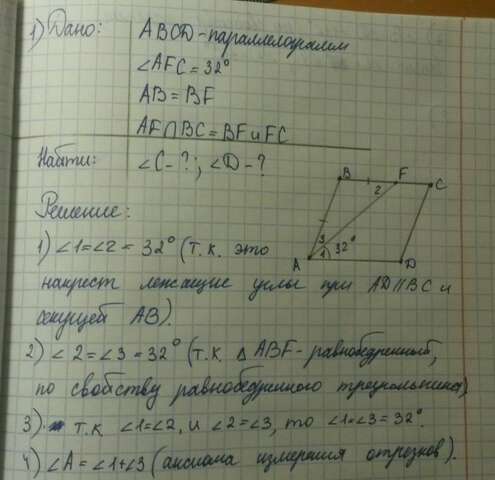 1) Дано: ABCD - параллелограмм
∠AFC = 32°
AB = BF
AF∩BC = BF и FC
Найти: ∠C - ?; ∠D - ?
B F C
2
3 32°
A 1 D
Решение:
1) ∠1=∠2 = 32° (т.к. это
накрест лежащие углы при AD||BC и
секущей AB).
2) ∠2 = ∠3 = 32° (т.к. △ABF - равнобедренный,
по свойству равнобедренного треугольника)
3) т.к ∠1=∠2, и ∠2=∠3, то ∠1=∠3=32°.
4) ∠A = ∠1+∠3 (аксиома измерения отрезков).